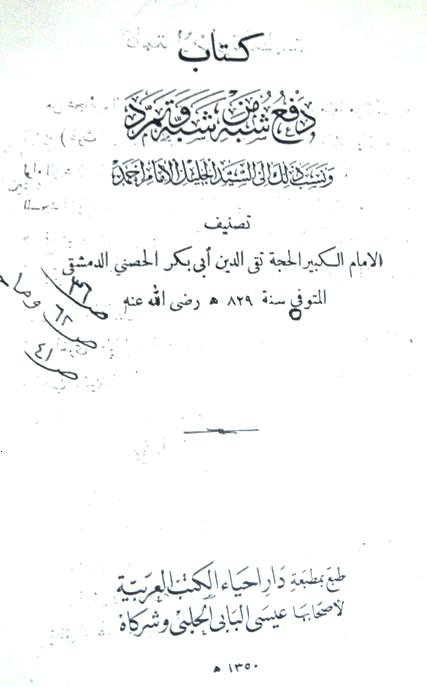 كتاب
دَفْعُ شُبَهِ مَنْ شَبَّهَ وَتَمَرَّدَ
وَنَسَبَ ذَلِكَ إلَى السَّيِّدِ الجَلِيْل الإِمَام أحْمَدْ
تصنيف
الامام الكبير الحجة تقى الدين أبى بكر الحصني الدمشقى
المتوفي سنة ٨٢٩ ﻫ رضى الله عنه
ص ٣٦
ص ٦٢ وما
ص ٤١
طبع بمطبعة دَارِ احيَاء الكتُب العَرَبيّة
لأصحابها عيسَى البَابى الحلبى وَشركاهُ
١٣٥٠ ﻫ